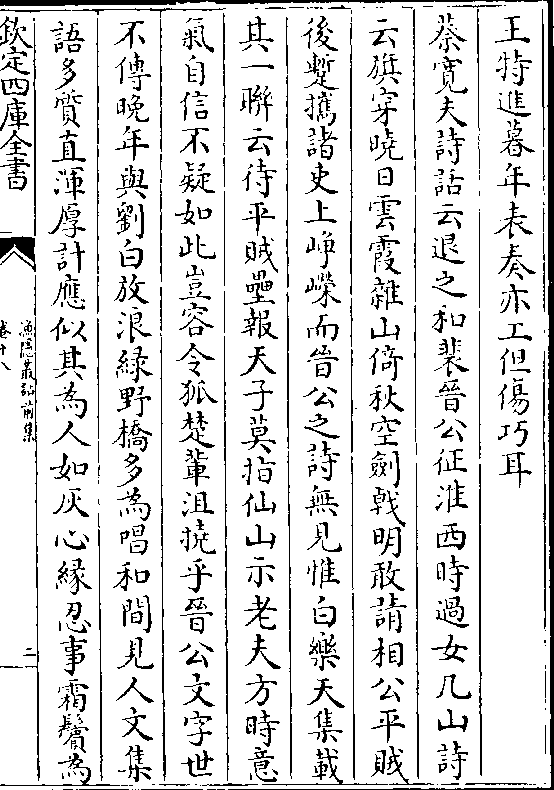 王特進暮年表奏亦工但傷巧耳
蔡寛夫詩話云退之和裴晉公征淮西時過女几山詩
云旗穿曉日雲霞雜山倚秋空劍㦸明敢請相公平賊
後蹔攜諸吏上峥嶸而晉公之詩無見惟白樂天集載
其一聯云待平賊壘報天子莫指仙山示老夫方時意
氣自信不疑如此豈容令狐楚輩沮撓乎晉公文字世
不傳晚年與劉白放浪緑野橋多為唱和間見人文集
語多質直渾厚計應似其為人如灰心縁忍事霜鬢為
欽定四庫全書
漁隠叢話前集
卷十八
二